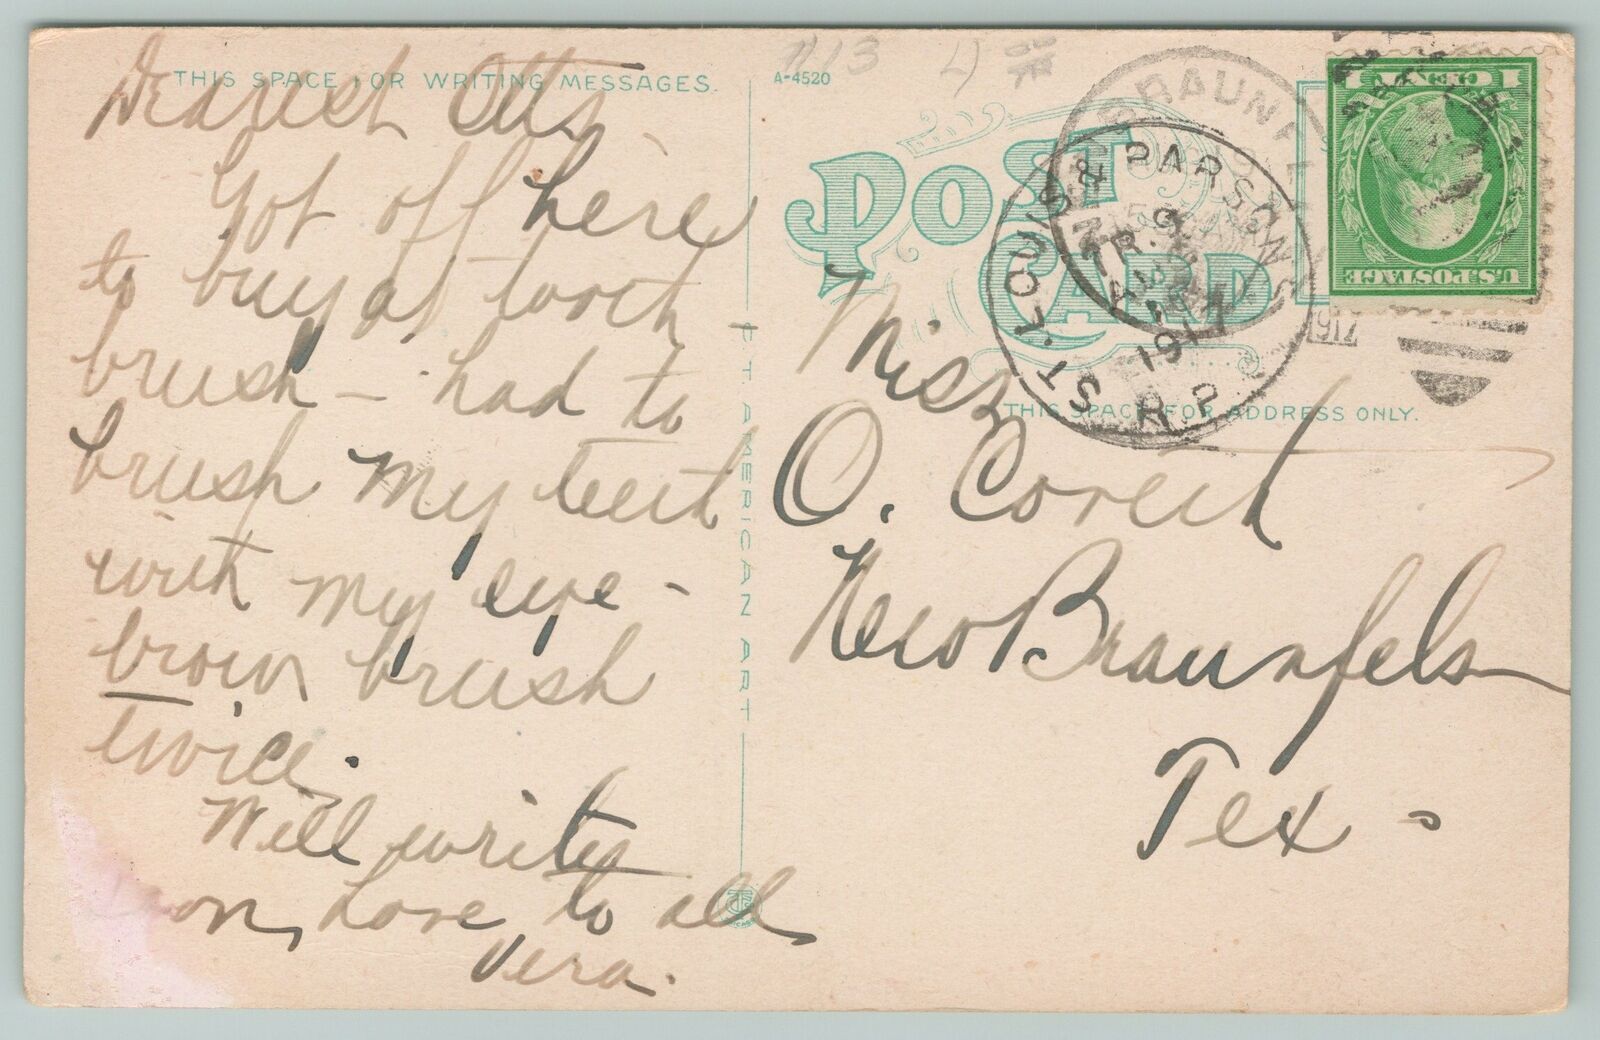 THIS SPACE FOR WRITING MESSAGES.
Dearest Otts -
Got off here
to buy a tooth
brush - had to
brush my teeth
with my eye -
brown brush
twice.
Will write
soon, Love to all
Vera.
C. T. AMERICAN ART
A-4520
1113
POST CARD
THIS SPACE FOR ADDRESS ONLY.
Miss
O. Coreth
New Braunfels
Tex -
ST. LOUIS & PARSONS
TR. 9
1917
R.P.O.
BRAUNFELS
1917
1 CENT 1
U.S. POSTAGE